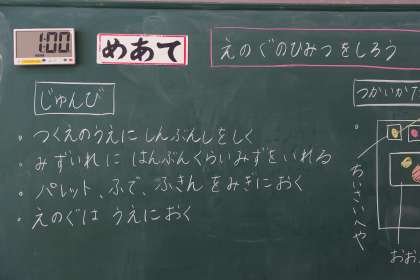 1:00
めあて
えのぐのひみつをしろう
じゅんび
・つくえのうえにしんぶんしをしく
・みずいれに はんぶんくらいみずをいれる
・パレット、ふで、ふきんをみぎにおく
・えのぐは うえにおく
つかいかた
ちいさいへや
おお